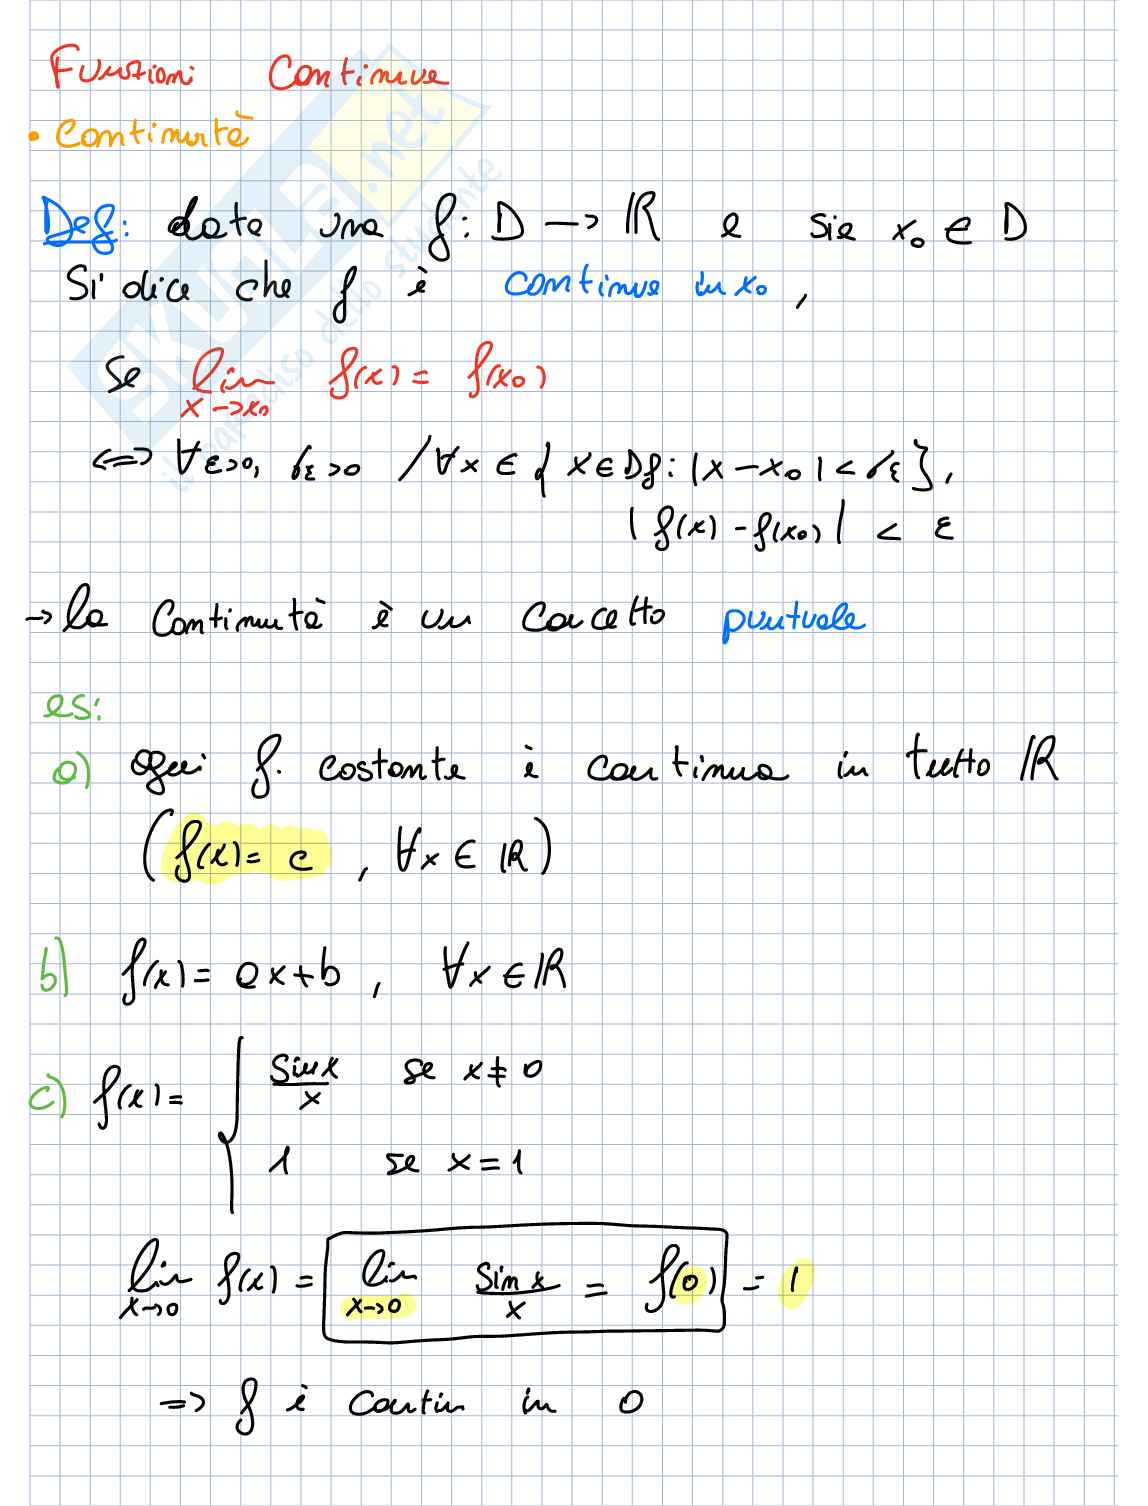 Funzioni Continue
• Continuità
Def: data una f: D → ℝ e sia x₀ ∈ D
Si dice che f è continua in x₀,
Se lim x→x₀ f(x) = f(x₀)
⟺ ∀ε>0, δε>0 / ∀x ∈ { x ∈ Df: |x − x₀| < δε },
| f(x) − f(x₀) | < ε
→ la Continuità è un Concetto puntuale
es:
a) ogni f. costante è continua in tutto ℝ
( f(x) = c , ∀x ∈ ℝ )
b) f(x) = ax+b , ∀x ∈ ℝ
c) f(x) = { sin x / x se x ≠ 0
1 se x = 1
lim x→0 f(x) = lim x→0 sin x / x = f(0) = 1
⇒ f è contin in 0
SKUOLA.net
il paradiso dello studente